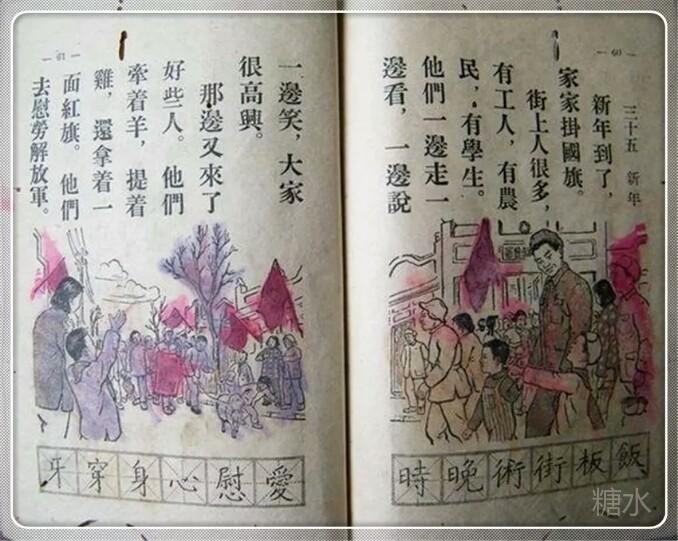 — 60 —
三十五 新年
新年到了，
家家掛國旗。
街上人很多，
有工人，有農
民，有學生。
他們一邊走一
邊看，一邊說
飯板街術晚時
— 61 —
一邊笑，大家
很高興。
那邊又來了
好些人。他們
牽着羊，提着
雞，還拿着一
面紅旗。他們
去慰勞解放軍。
愛慰心身穿牙
糖水